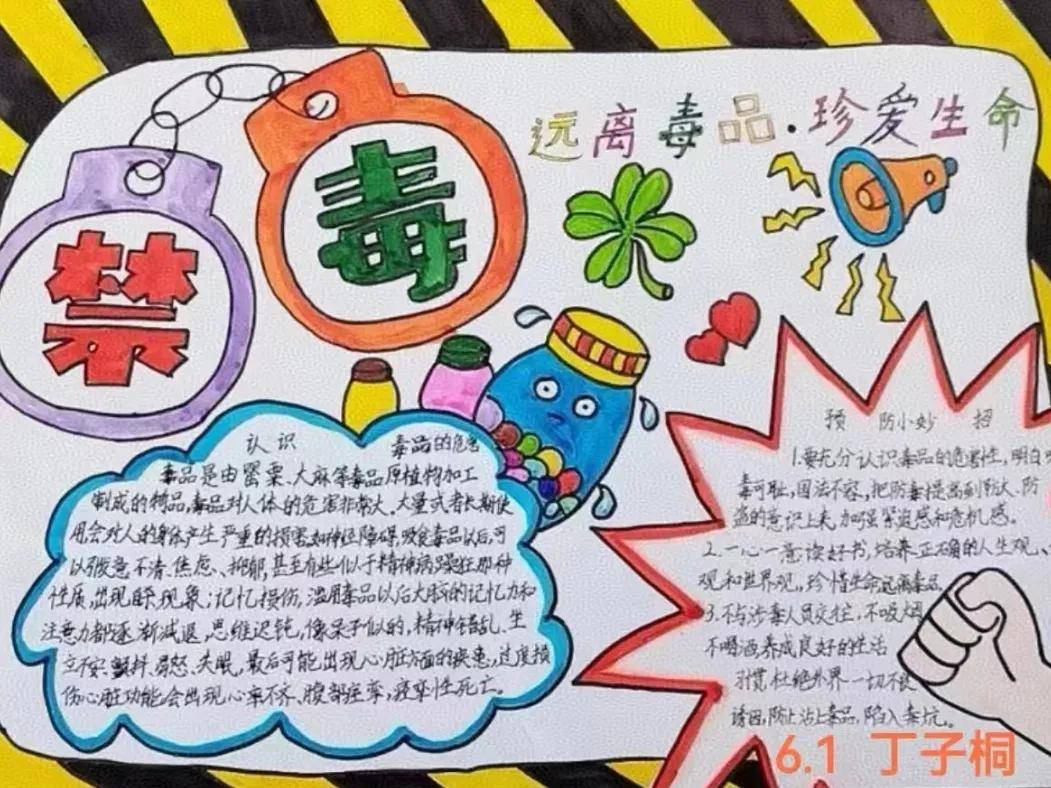 远离毒品·珍爱生命
禁毒
认识 毒品的危害
毒品是由罂粟、大麻等毒品原植物加工
制成的物品,毒品对人体的危害非常大,大量或者长期使
用会对人的身体产生严重的损害如神经障碍,吸食毒品以后,可
以引致意不清、焦虑、抑郁,甚至有些似于精神病躁狂那种
性质,出现 现象;记忆损伤,滥用毒品以后大脑的记忆力和
注意力都逐渐减退,思维迟钝,像呆子似的,精神错乱、坐
立不安、颤抖、易怒、失眠,最后可能出现心脏方面的疾患,过度损
伤心脏功能会出现心率不齐、腹部痉挛,痉挛性死亡。
预防小妙招
1.要充分认识毒品的危害性,明白吸
毒可耻,国法不容,把防毒提高到防火、防
盗的意识上来,加强紧迫感和危机感。
2.一心一意读好书,培养正确的人生观、
观和世界观,珍惜生命远离毒品
3.不与涉毒人员交往,不吸烟
不喝酒养成良好的生活
习惯杜绝外界一切不良
诱因,防止沾上毒品,陷入毒坑。
6.1 丁子桐